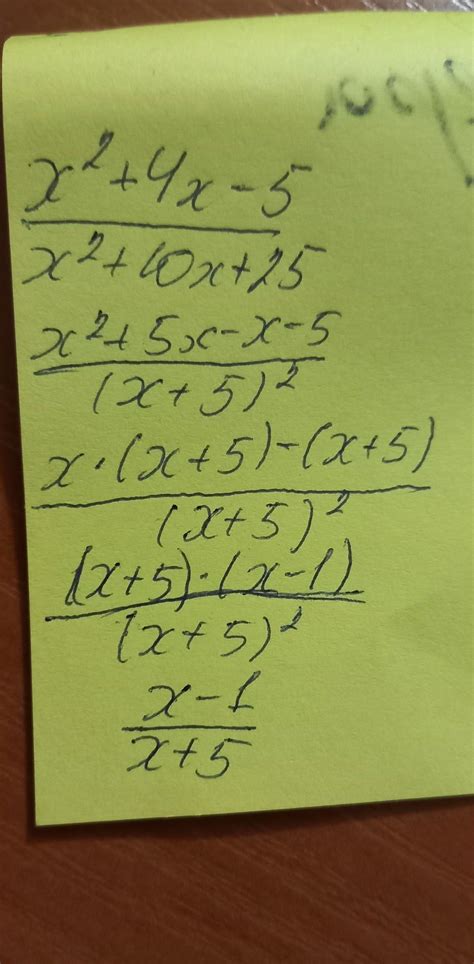 x²+4x-5
x²+10x+25
x²+5x-x-5
(x+5)²
x·(x+5)-(x+5)
(x+5)²
(x+5)·(x-1)
(x+5)²
x-1
x+5